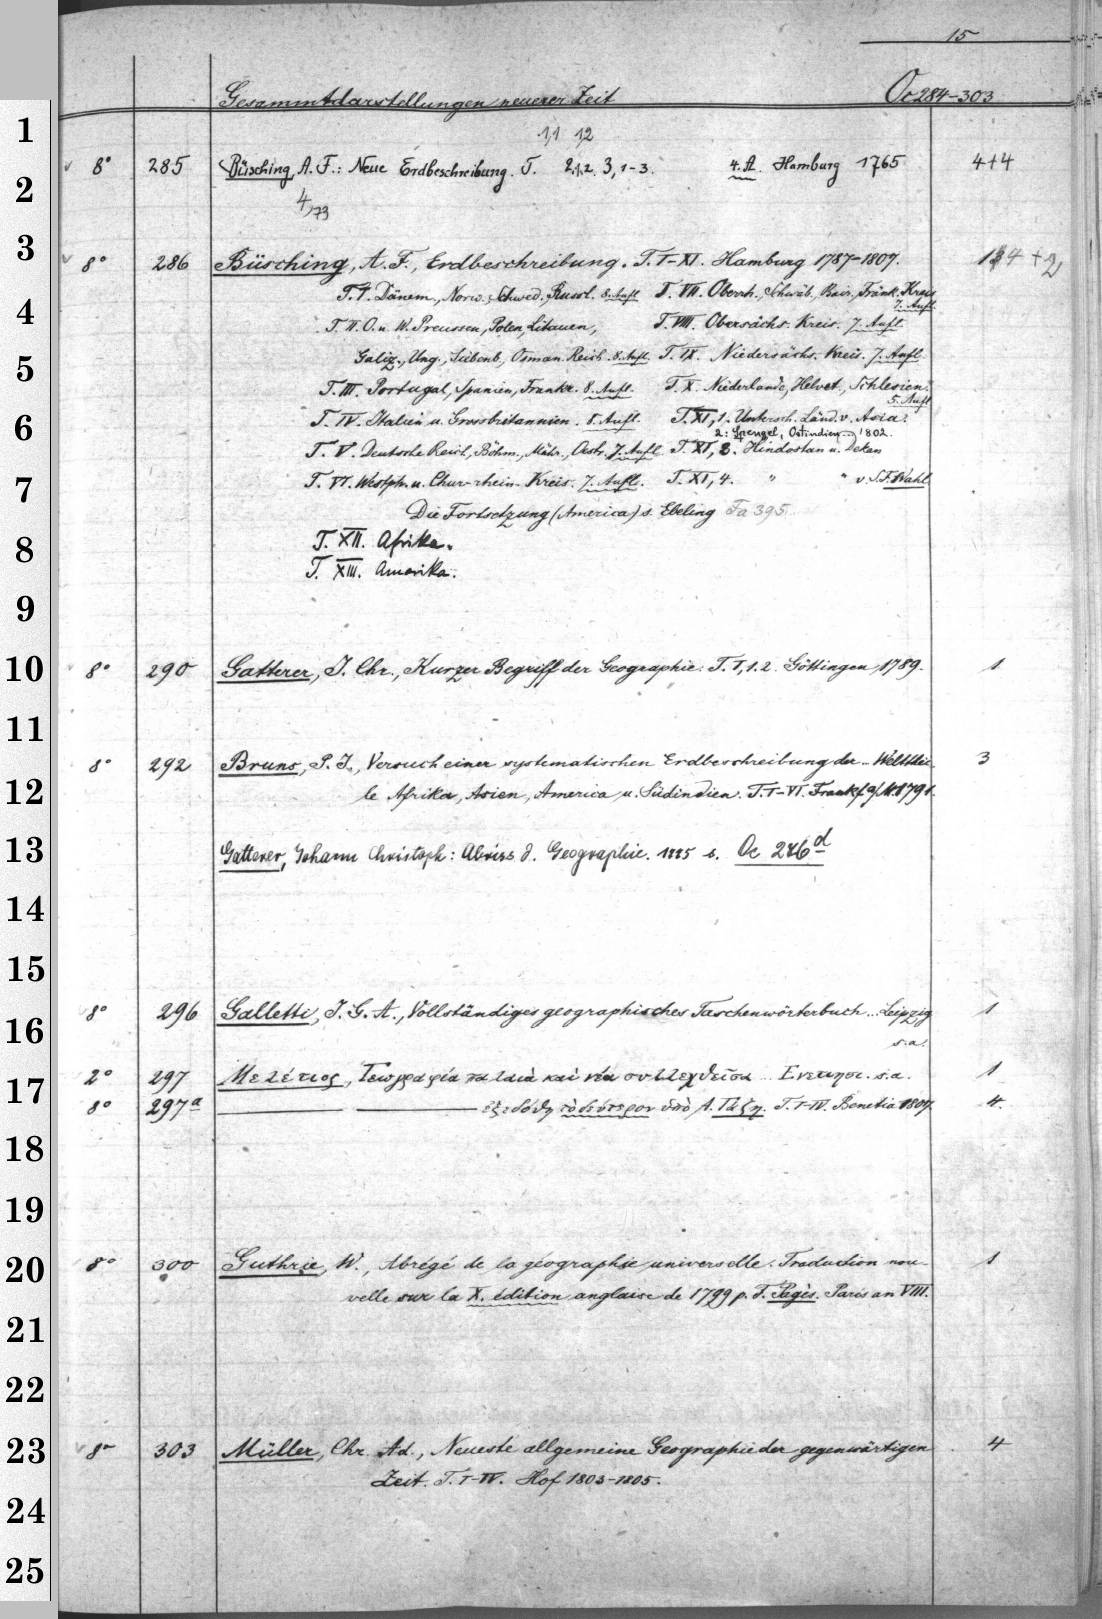 15
Gesammtdarstellungen neuerer Zeit Oc 284-303
1,1 1,2
1
8° 285 Büsching, A. F.: Neue Erdbeschreibung. T. 2,1,2. 3,1-3. 4. A. Hamburg 1765 4+4
2
4/73
3
8° 286 Büsching, A. F., Erdbeschreibung. T. I-XI. Hamburg 1787-1807. 14 + 2
T. I. Dänem., Norw., Schwed., Russl. 8. Aufl. T. VII. Oberrh., Schwäb., Bair., Fränk. Kreis 7. Aufl.
4
T. II. O. u. W. Preussen, Polen, Litauen, T. VIII. Obersächs. Kreis. 7. Aufl.
5
Galiz., Ung., Siebenb., Osman. Reich. 8. Aufl. T. IX. Niedersächs. Kreis. 7. Aufl.
T. III. Portugal, Spanien, Frankr. 8. Aufl. T. X. Niederlande, Helvet., Schlesien. 5. Aufl.
6
T. IV. Italien u. Grossbritannien. 8. Aufl. T. XI, 1. Untersch. Länd. v. Asia.
2: Sprengel, Ostindien 1802.
T. V. Deutsche Reich, Böhm., Mähr., Oestr. 7. Aufl. T. XI, 3. Hindostan u. Dekan
7
T. VI. Westph. u. Chur-rhein. Kreis. 7. Aufl. T. XI, 4. " " v. S. F. Wahl
Die Fortsetzung (America) s. Ebeling Fa 395
8
T. XII. Afrika.
T. XIII. Amerika.
9
10
8° 290 Gatterer, J. Chr., Kurzer Begriff der Geographie. T. I, 1. 2. Göttingen, 1789. 1
11
8° 292 Bruns, P. J., Versuch einer systematischen Erdbeschreibung der .. Welttei- 3
12
le Afrika, Asien, America u. Südindien. T. I-VI. Frankf a/M. 1791.
13
Gatterer, Johann Christoph: Abriss d. Geographie. 1775 s. Oc 276 d
14
15
8° 296 Galletti, J. G. A., Vollständiges geographisches Taschenwörterbuch ... Leipzig 1
16
s.a.
17
2° 297 Μελέτιος, Γεωγραφία παλαιὰ καὶ νέα συλλεχθεῖσα ... Ενετιησι. s.a. 1
8° 297a ἐξεδόθη τὸ δεύτερον ὑπὸ Α. Γάζη. T. I-IV. Benetia 1807. 4.
18
19
20
8° 300 Guthrie, W., Abrégé de la géographie universelle. Traduction nou- 1
velle sur la X. édition anglaise de 1799 p. F. Pagès. Paris an VIII.
21
22
23
8° 303 Müller, Chr. Ad., Neueste allgemeine Geographie der gegenwärtigen 4
Zeit. T. I-IV. Hof 1803-1805.
24
25